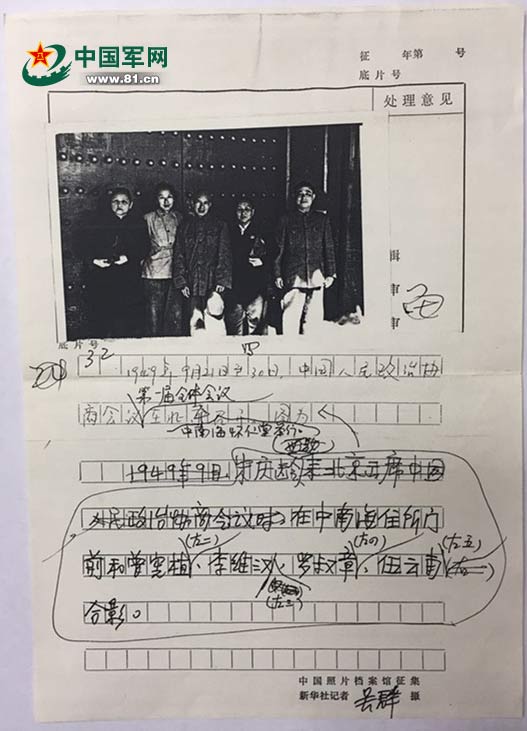 中国军网
www.81.cn
征 年第 号
底片号
处理意见
辑
审
审
底片号
32
1949年9月21日至30日,中国人民政治协
第一届全体会议
商会议在北 图为
中南海怀仁堂举行。
1949年9月,宋庆龄来北京出席中国
人民政治协商会议时,在中南海住所门
(左二) (左四) (左五)
前和曾宪植、李维汉、罗叔章、伍云甫(左一)
(左三)
合影。
中国照片档案馆征集
新华社记者 吴群 摄